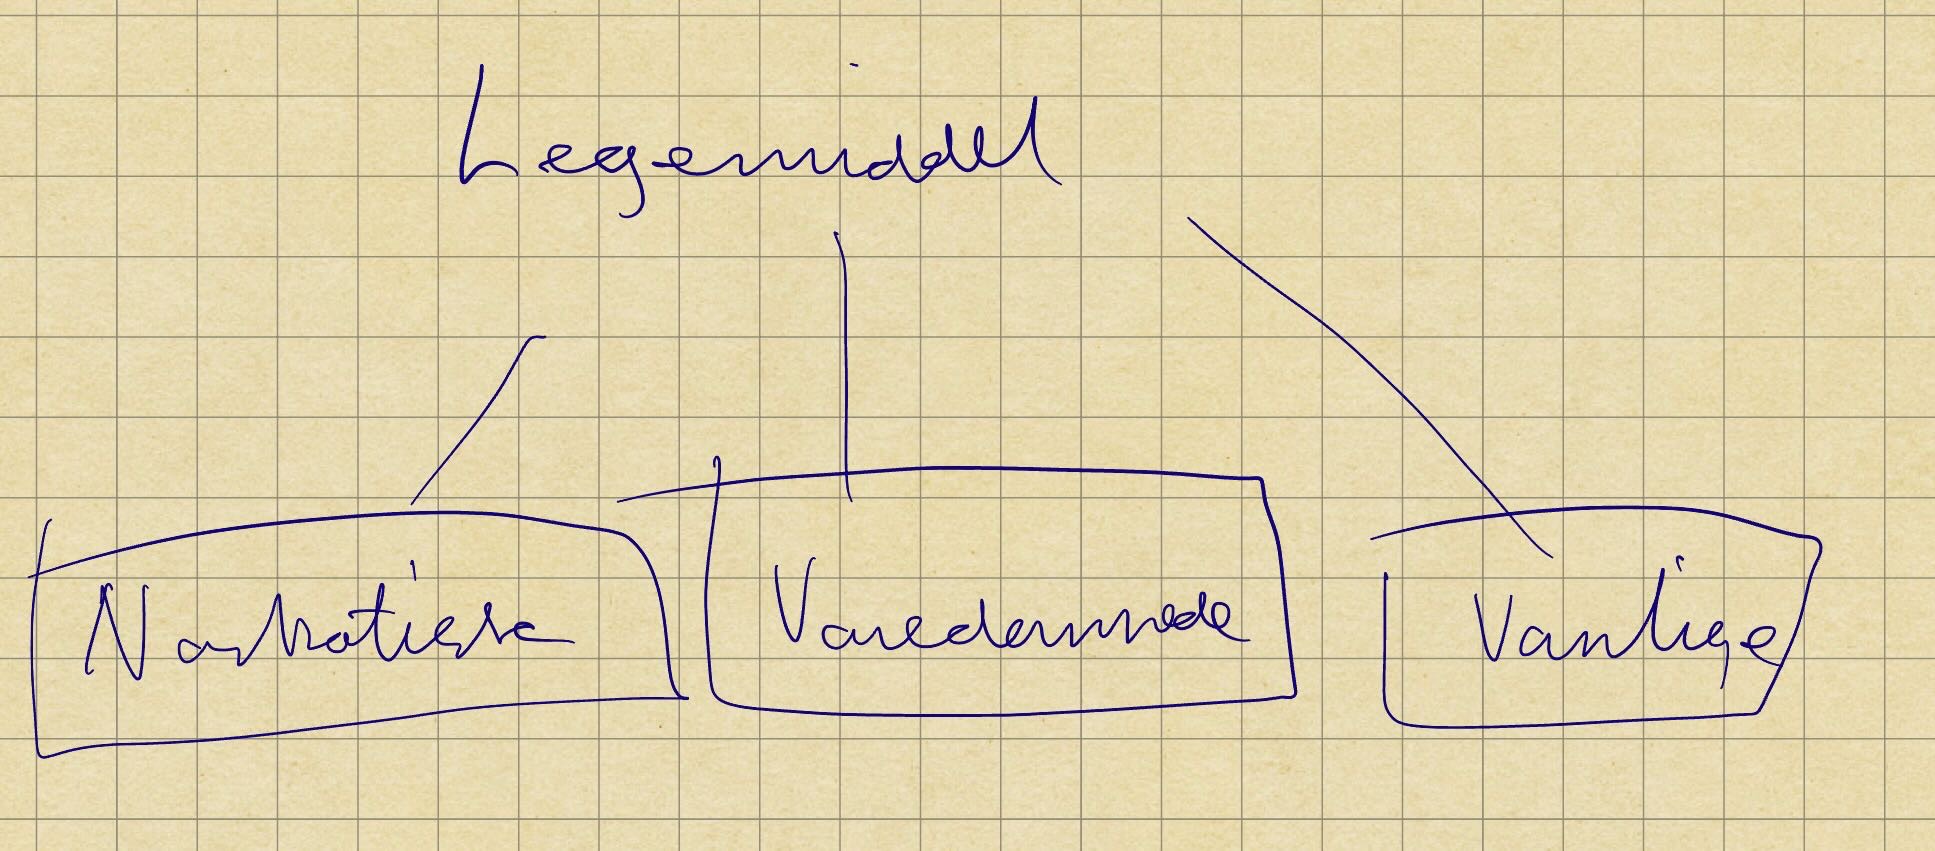 Legemiddel
Narkotiske
Vanedannende
Vanlige